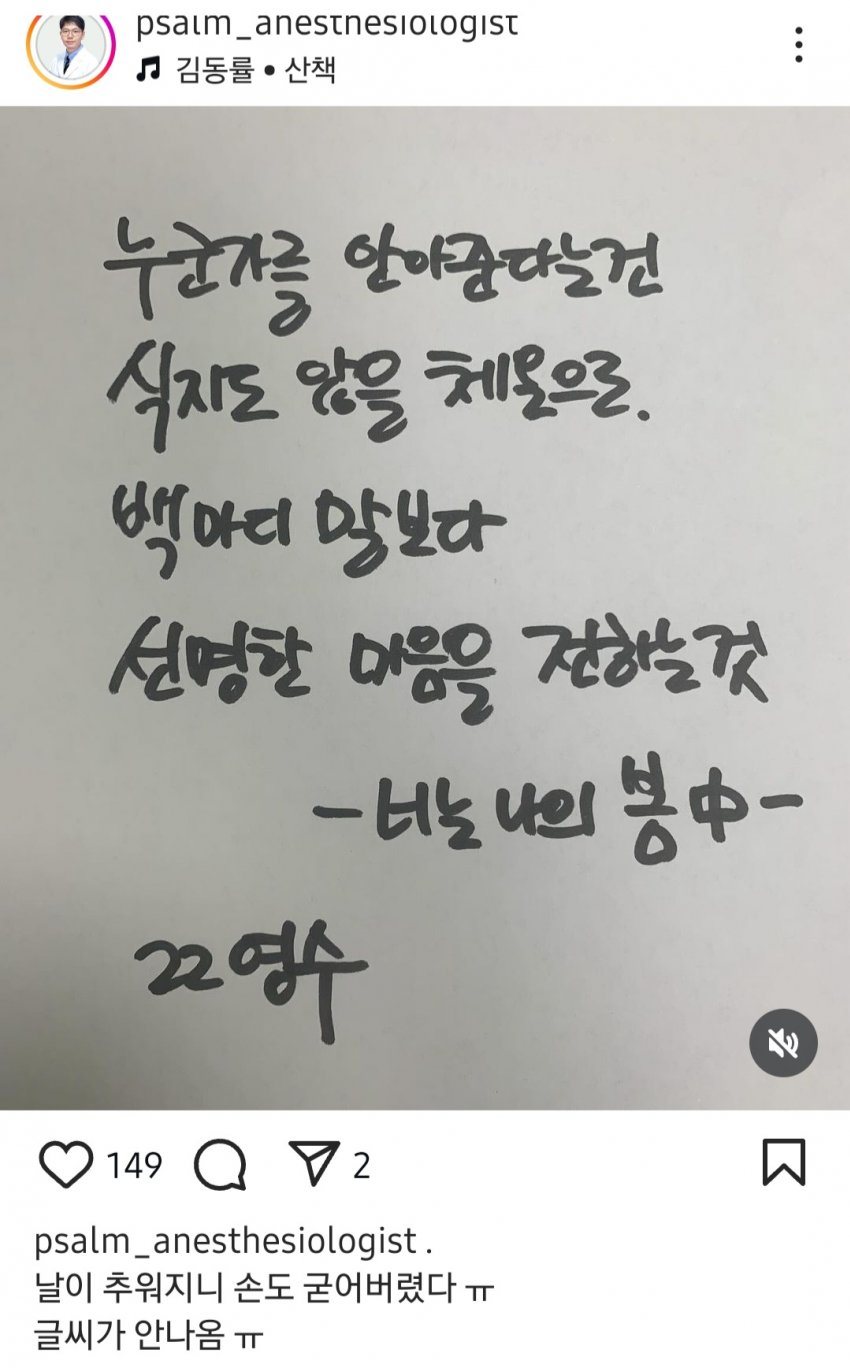 psalm_anesthesiologist
김동률 • 산책
누군가를 안아준다는건
식지도 않을 체온으로.
백마디 말보다
선명한 마음을 전하는것
-너는 나의 봄中-
22영수
149
2
psalm_anesthesiologist .
날이 추워지니 손도 굳어버렸다 ㅠ
글씨가 안나옴 ㅠ